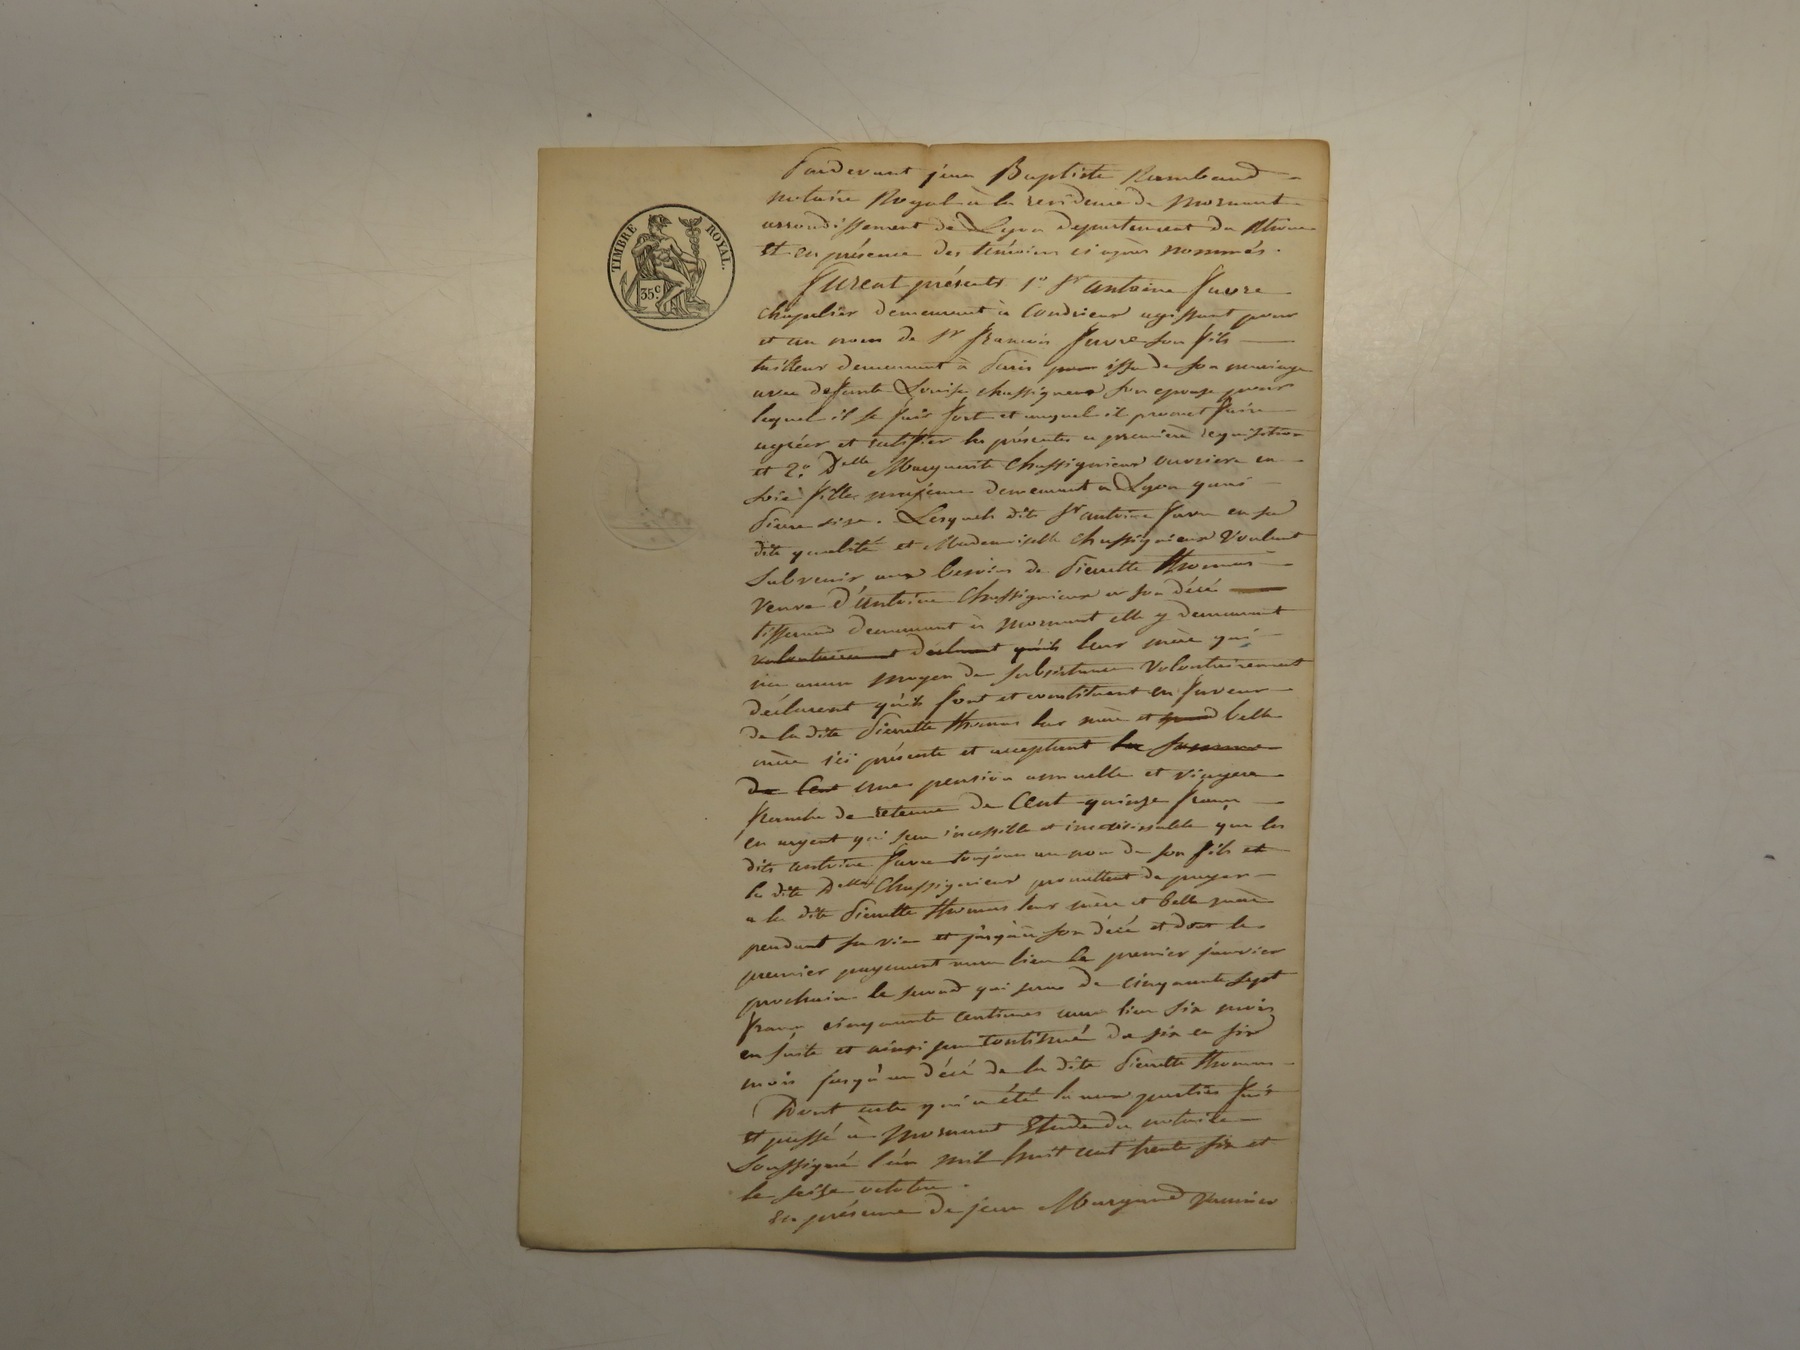 TIMBRE ROYAL.
35 c.
Pardevant jean Baptiste Rambaud
notaire Royal à la residence de Mornant
arrondissement de Lyon departement du Rhône
Et en présence des témoins ci après nommés.
Furent présents 1º Sr antoine favre
chapelier demeurant à Condrieux agissant pour
et au nom de Sr francois favre son fils
tailleur demeurant à Paris issu de son mariage
avec defunte Louise chassignieux son epouse pour
lequel il se fait fort et auquel il promet faire
agréer et ratifier les présentes a première requisition
et 2º Delle Marguerite Chassignieux ouvriere en
soie fille majeure demeurant a Lyon quai
Pierre size. Lesquels dits Sr antoine favre en sa
dite qualité et Mademoiselle Chassignieux Voulant
Subvenir aux besoins de Pierrette Thomas
Veuve d'antoine Chassignieux a son décé
tisserand demeurant à Mornant elle y demeurant
volontairement déclarent qu'ils leur mère qui
n'a aucun moyen de subsistance Volontairement
déclarent qu'ils font et constituent en faveur
de la dite Pierrette Thomas leur mère et belle
mère ici présente et acceptant la somme
de Cent une pension annuelle et viagere
franche de retenue de Cent quinze francs
en argent qui sera incessible et insaisissable que les
dits antoine favre toujours au nom de son fils et
la dite Delle Chassignieux promettent de payer
a la dite Pierrette Thomas leur mère et belle mère
pendant sa vie et jusqu'à son décé et dont le
premier payement aura lieu le premier janvier
prochain le second qui sera de cinquante sept
francs cinquante centimes aura lieu six mois
en suite et ainsi sera continué de six en six
mois jusqu'au décé de la dite Pierrette Thomas
Dont acte qui a été lu aux parties fait
et passé à Mornant Etude du notaire
Soussigné l'an mil huit cent trente six et
le seize octobre.
En présence de jean Marganed